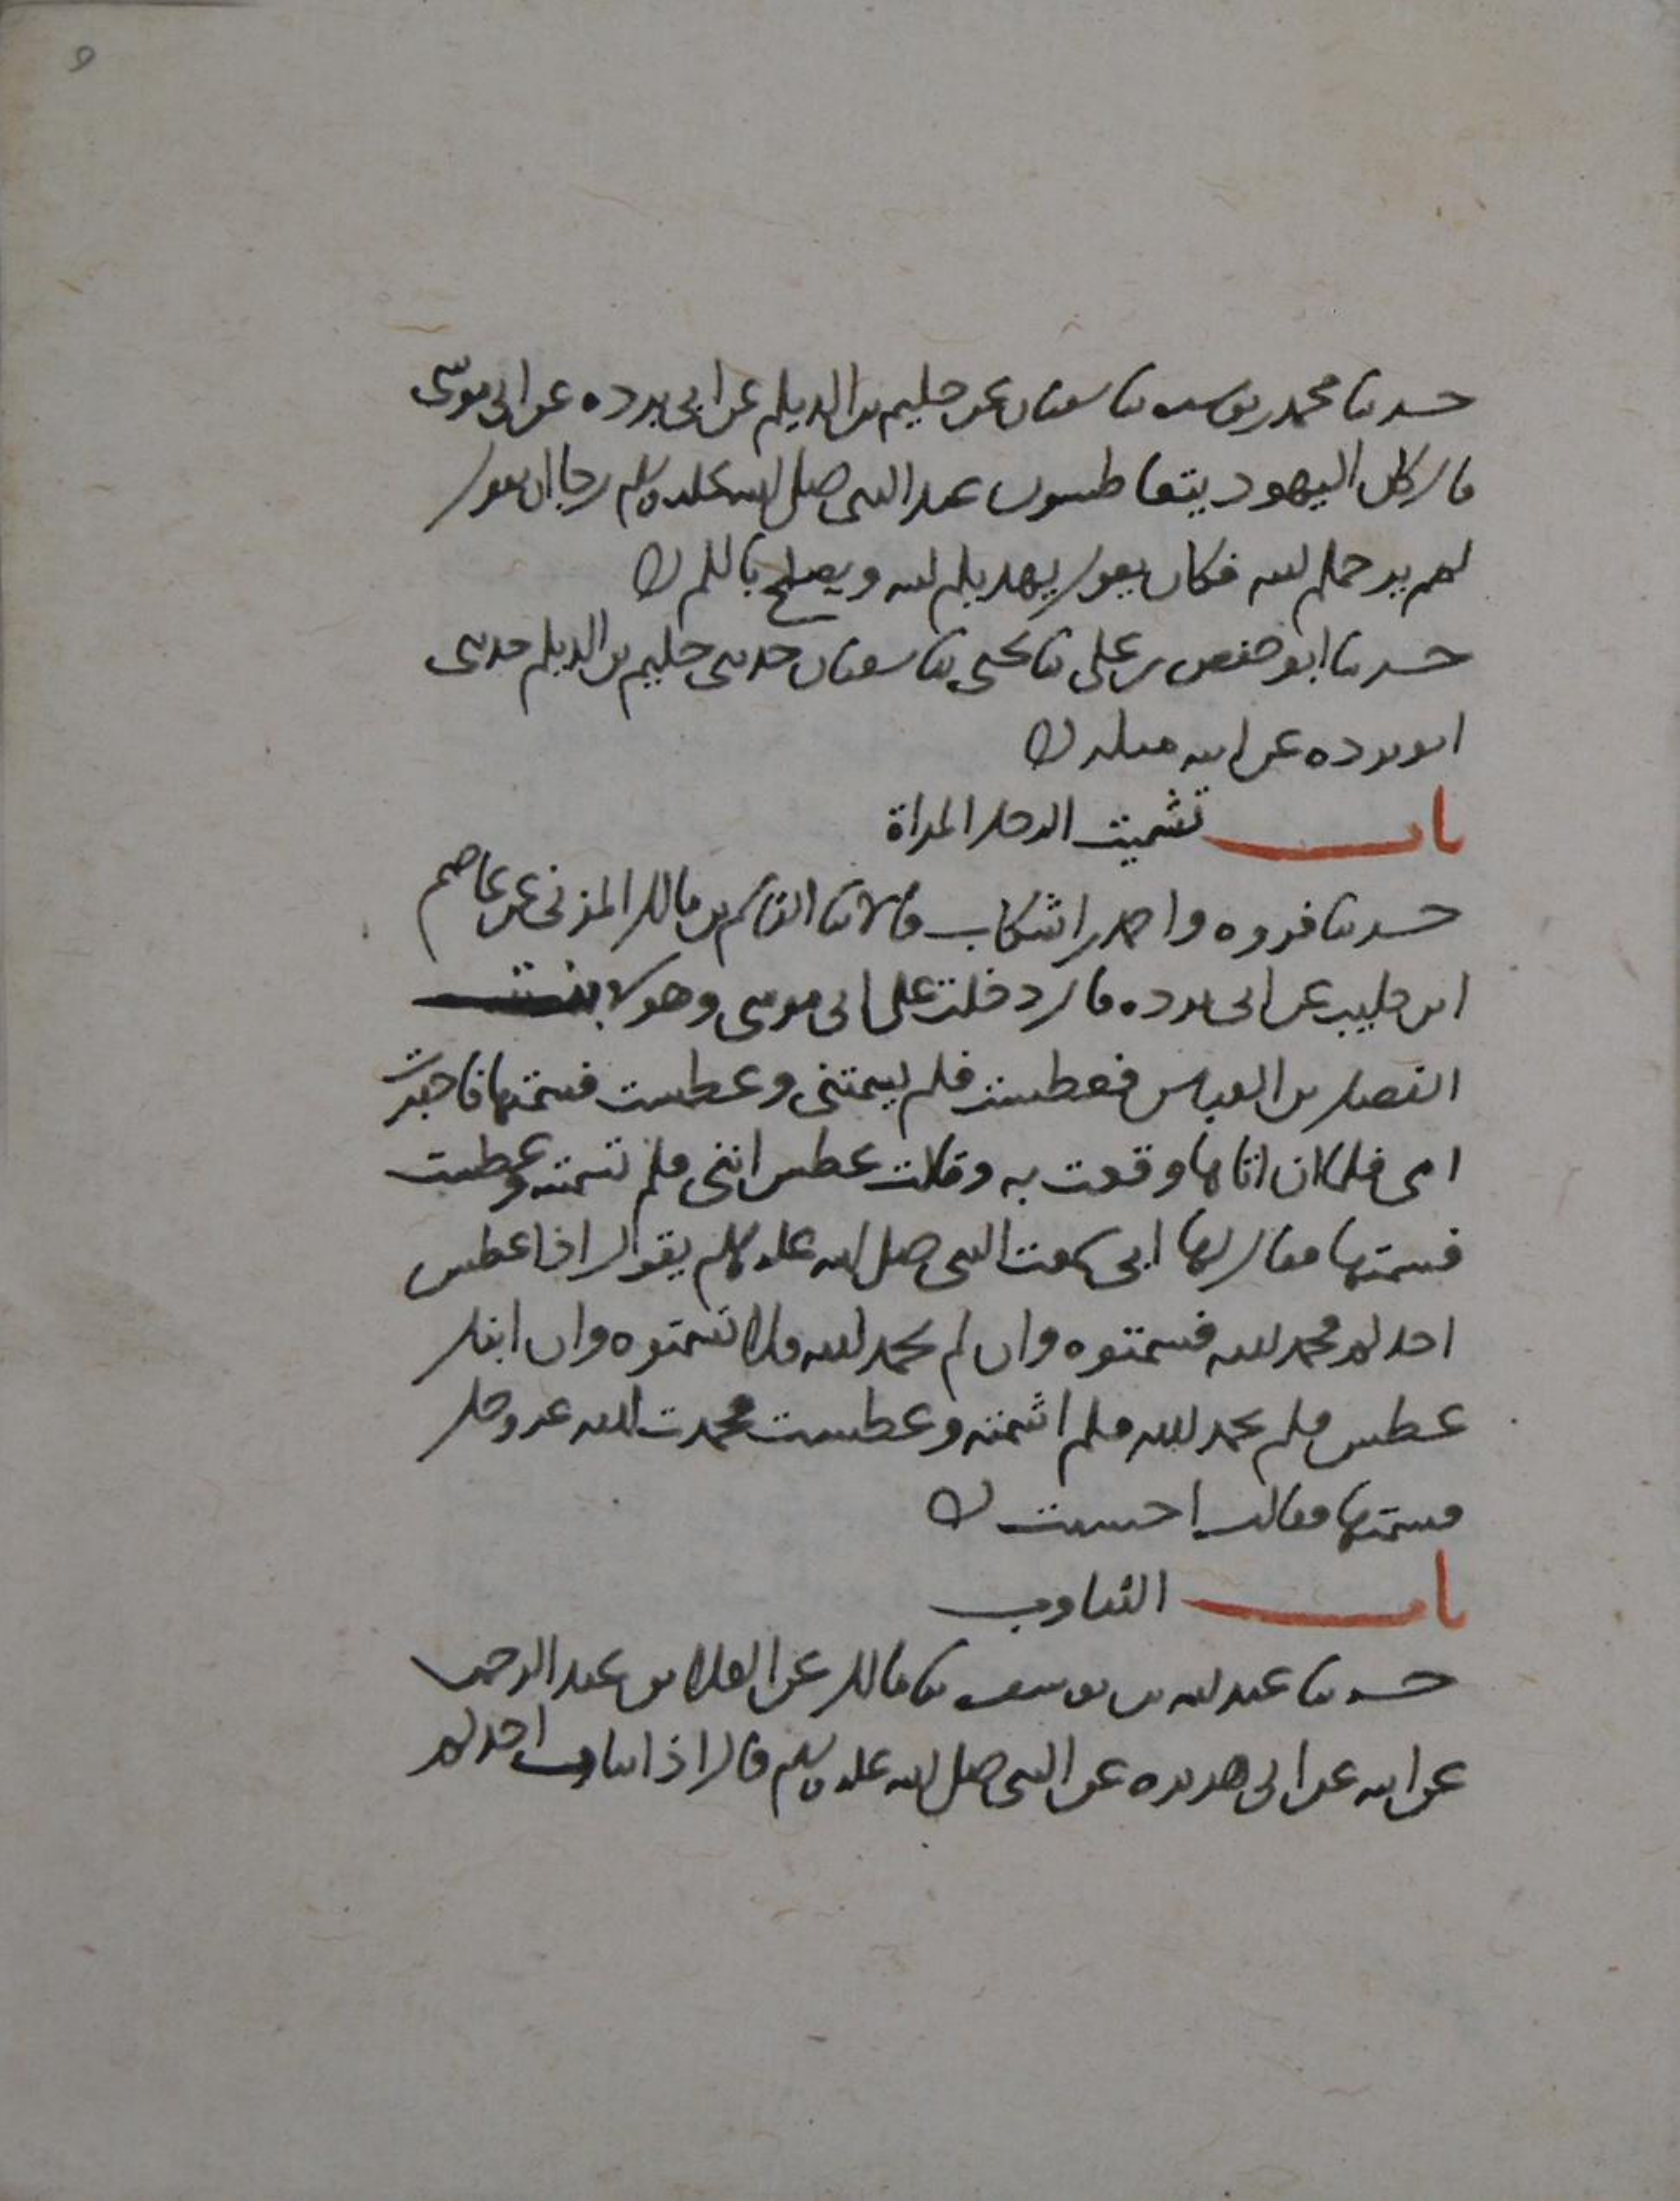 ٩
حدثنا محمد بن يوسف ثنا سفيان عن حكيم بن الديلم عن ابي بردة عن ابي موسى
قال كان اليهود يتعاطسون عند النبي صلى الله عليه وسلم رجا ان يقول
لهم يرحمكم الله فكان يقول يهديكم الله ويصلح بالكم
حدثنا ابو حفص بن علي ثنا يحيى ثنا سفيان حدثني حكيم بن الديلم حدثني
ابو بردة عن ابيه مثله
باب تشميت الرجل المراة
حدثنا فروه واحمد بن اشكاب قالا ثنا القاسم بن مالك المزني عن عاصم
ابن كليب عن ابي بردة قال دخلت على ابي موسى وهو لا بنت
الفضل بن العباس فعطست فلم يشمتني وعطست فشمتها فاخبرت
امي فلما ان اتاها وقعت به وقالت عطس ابني فلم تشمته وعطست
فشمتها فقال لها اني سمعت النبي صلى الله عليه وسلم يقول اذا عطس
احدكم فحمد الله فشمتوه وان لم يحمد الله فلا تشمتوه وان ابنك
عطس فلم يحمد الله فلم اشمته وعطست فحمدت الله عز وجل
فشمتها فقالت احسنت
باب التثاوب
حدثنا عبد الله بن يوسف ثنا مالك عن العلا بن عبد الرحمن
عن ابيه عن ابي هريرة عن النبي صلى الله عليه وسلم قال اذا تثاوب احدكم